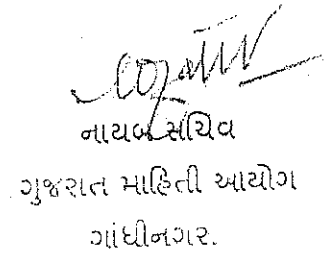 નાયબ સચિવ
ગુજરાત માહિતી આયોગ
ગાંધીનગર.